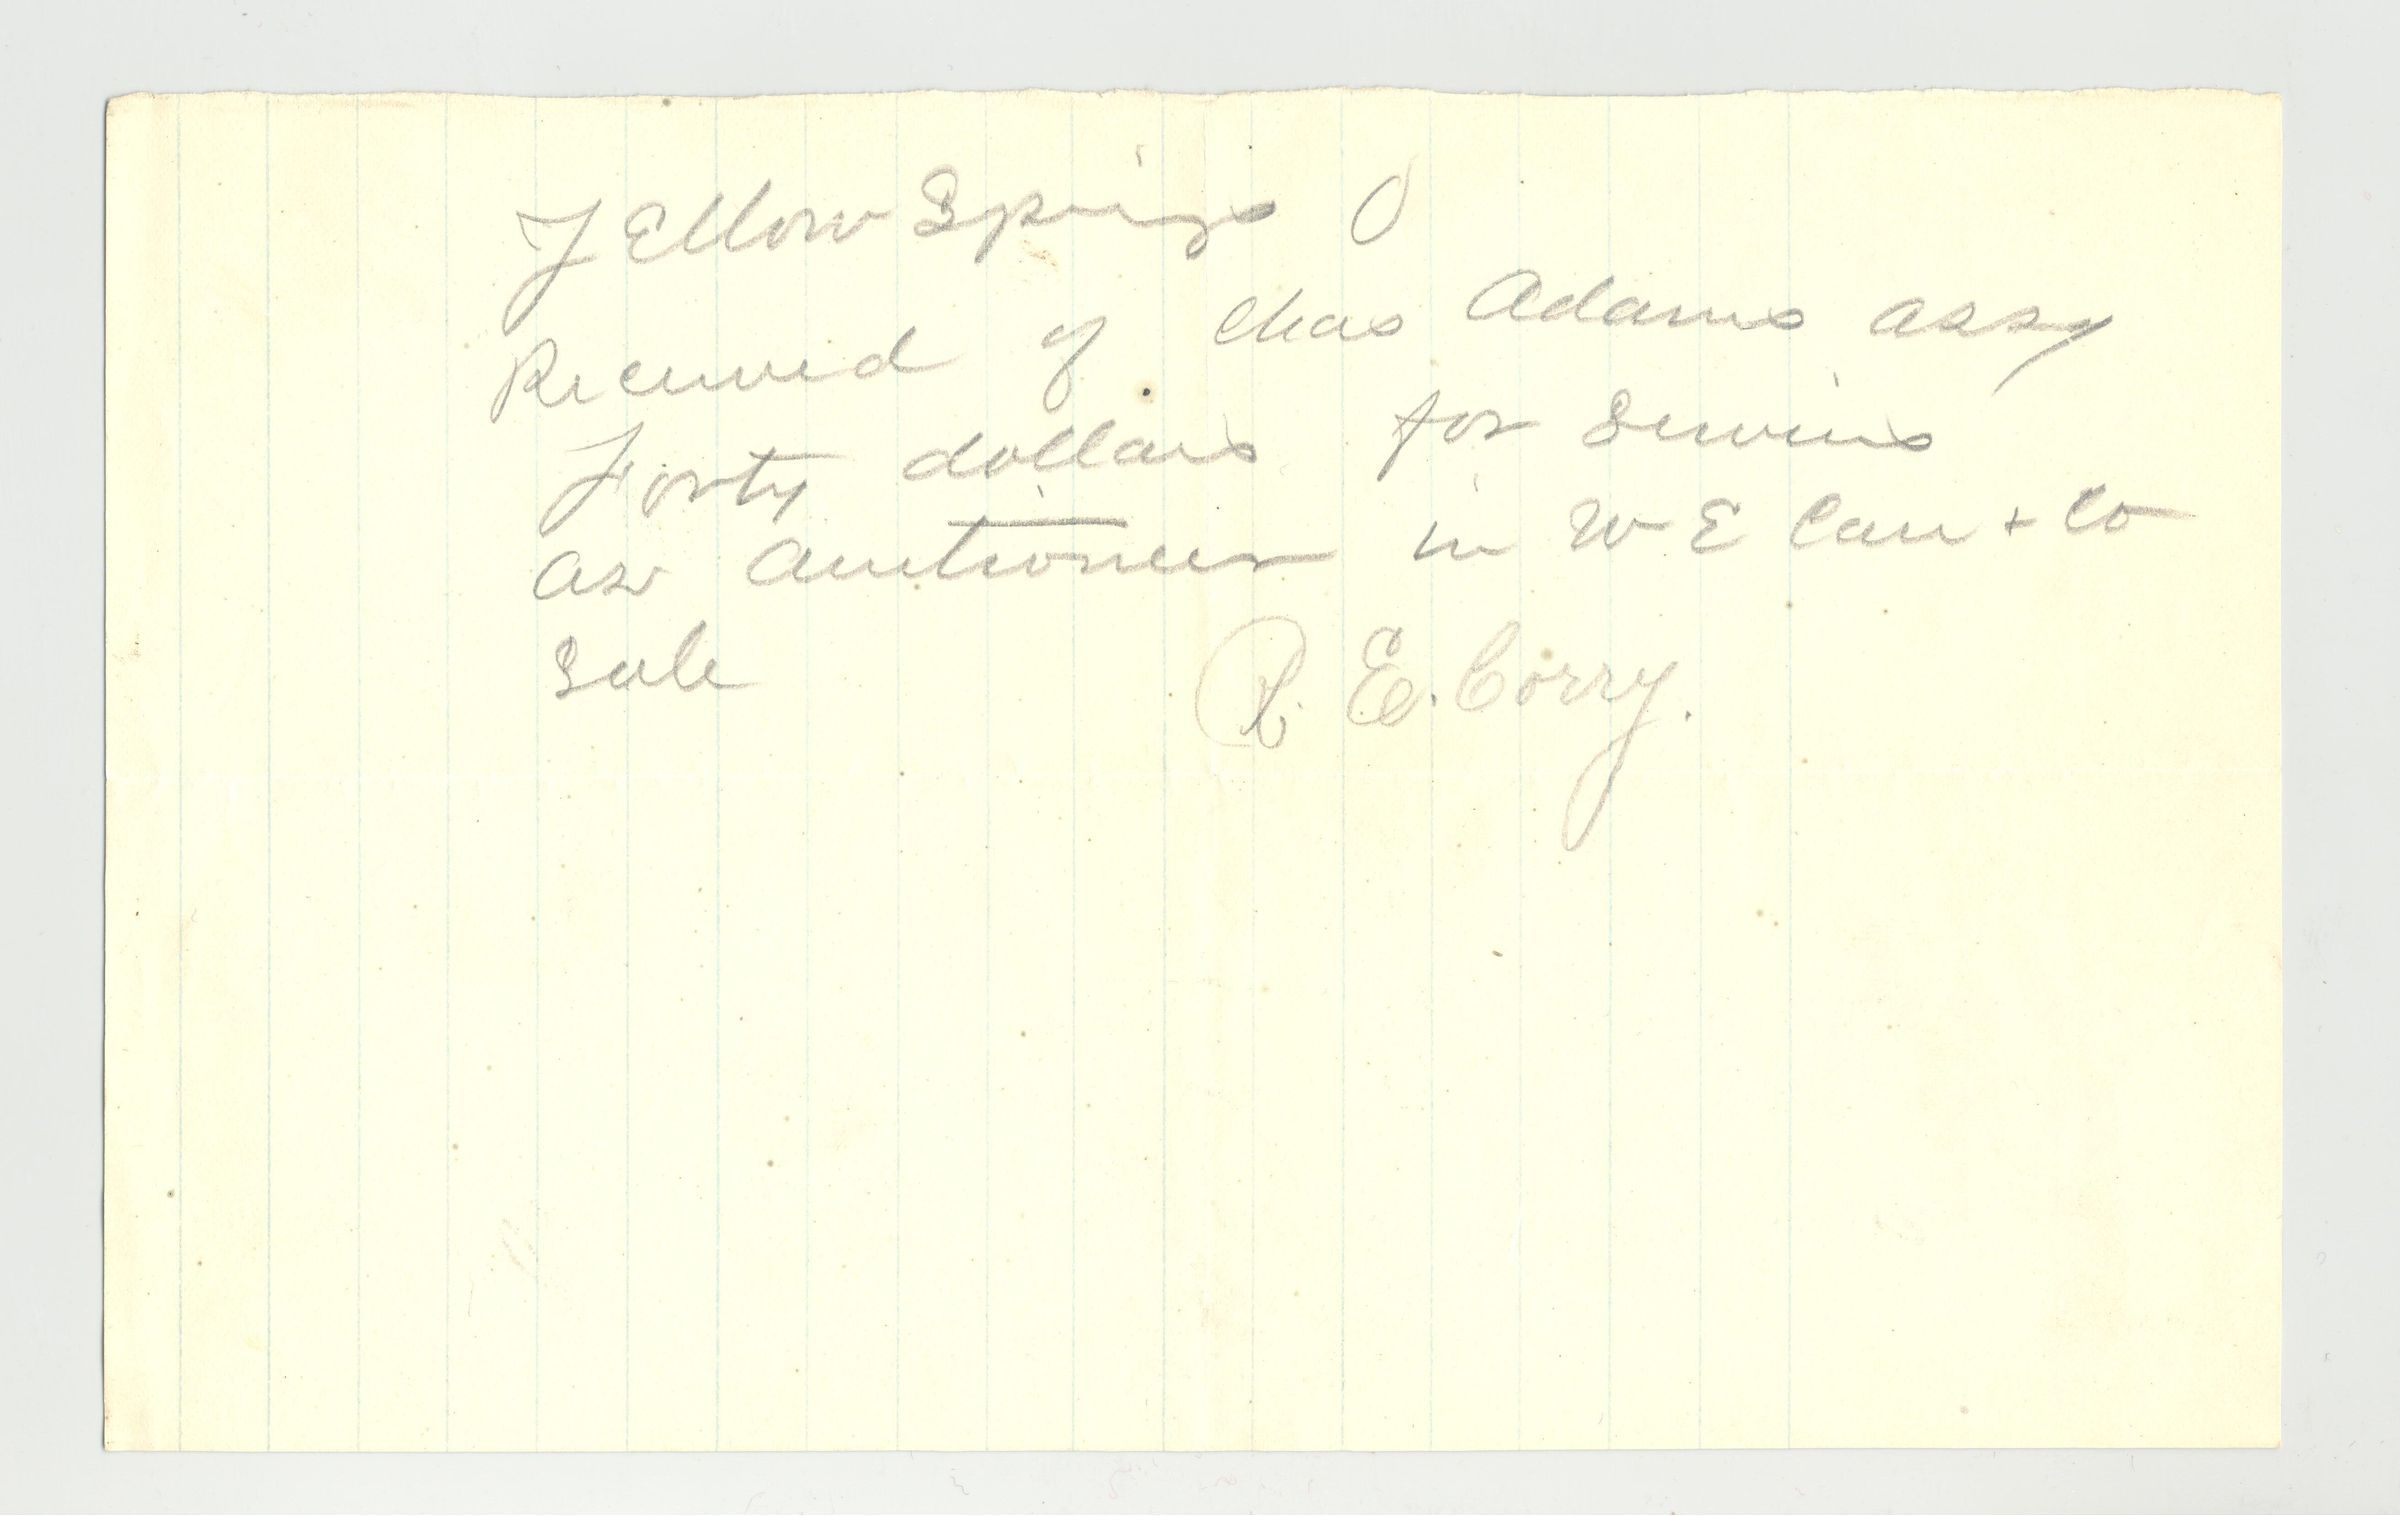 Yellow Springs O
Received of Chas Adams assg
Forty dollars for Services
as auctioneer in W E Carr + Co
Sale
R. E. Corry.